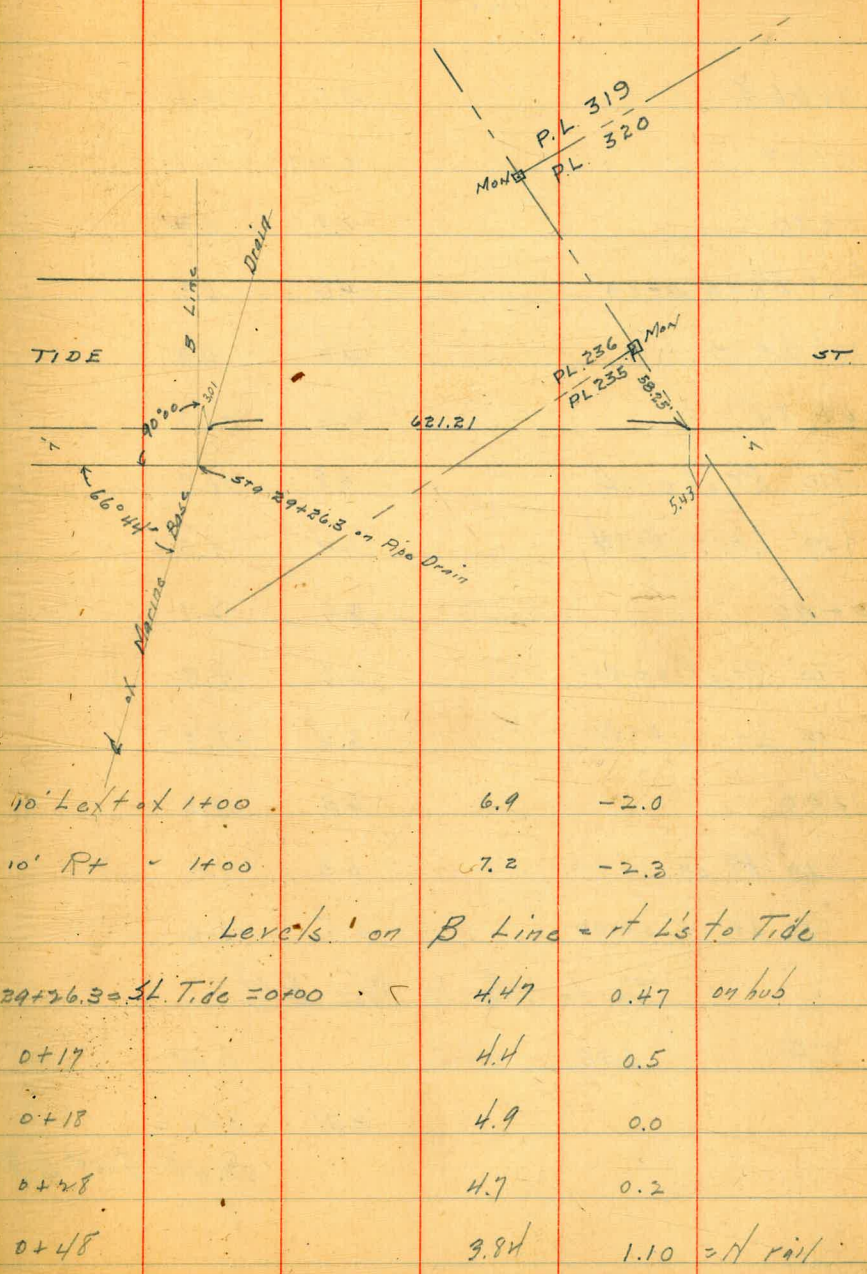 P.L. 319
P.L. 320
MON
Drain
B Line
TIDE
ST.
MON
PL. 236
PL 235
58.25'
3.01
90°00
621.21
7'
7'
66°44'
Base
Sta 29+26.3 on Pipe Drain
5.43
of Marine
10' Left of 1+00 6.9 -2.0
10' Rt " 1+00 7.2 -2.3
Levels on B Line = rt L's to Tide
29+26.3 = SL. Tide = 0+00 4.47 0.47 on hub
0+17 4.4 0.5
0+18 4.9 0.0
0+28 4.7 0.2
0+48 3.84 1.10 = N rail